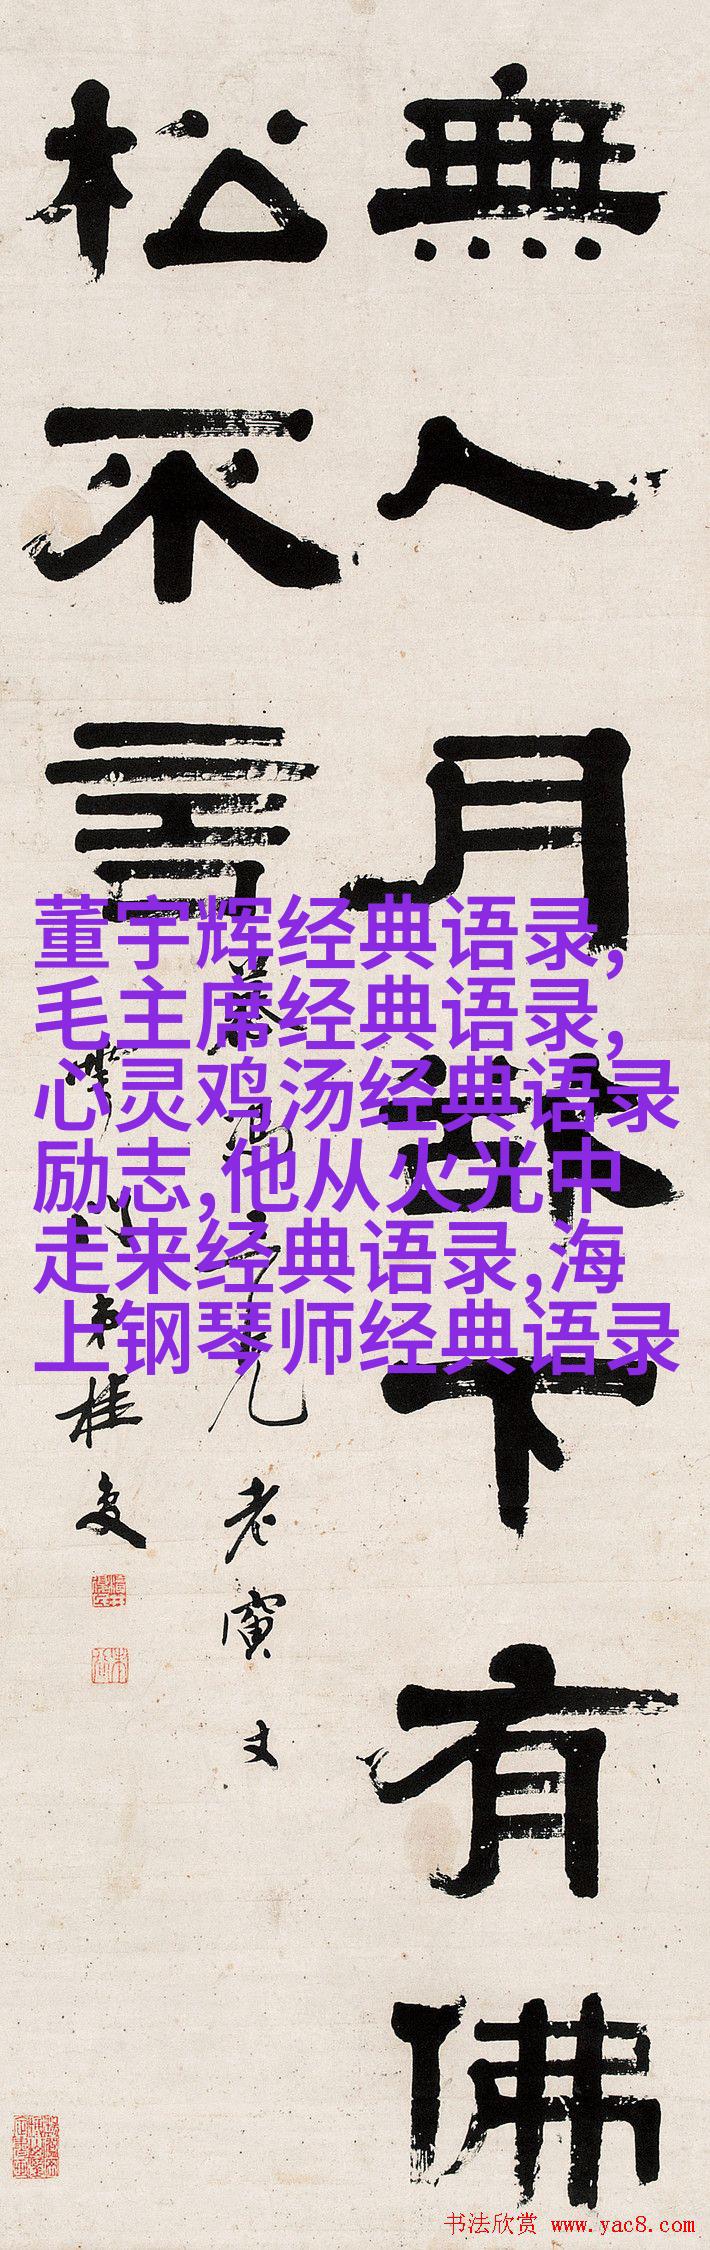 無人月下有佛
松不言
老
丈
桂
董宇辉经典语录,
毛主席经典语录,
心灵鸡汤经典语录
励志,他从火光中
走来经典语录,海
上钢琴师经典语录
书法欣赏 www.yac8.com